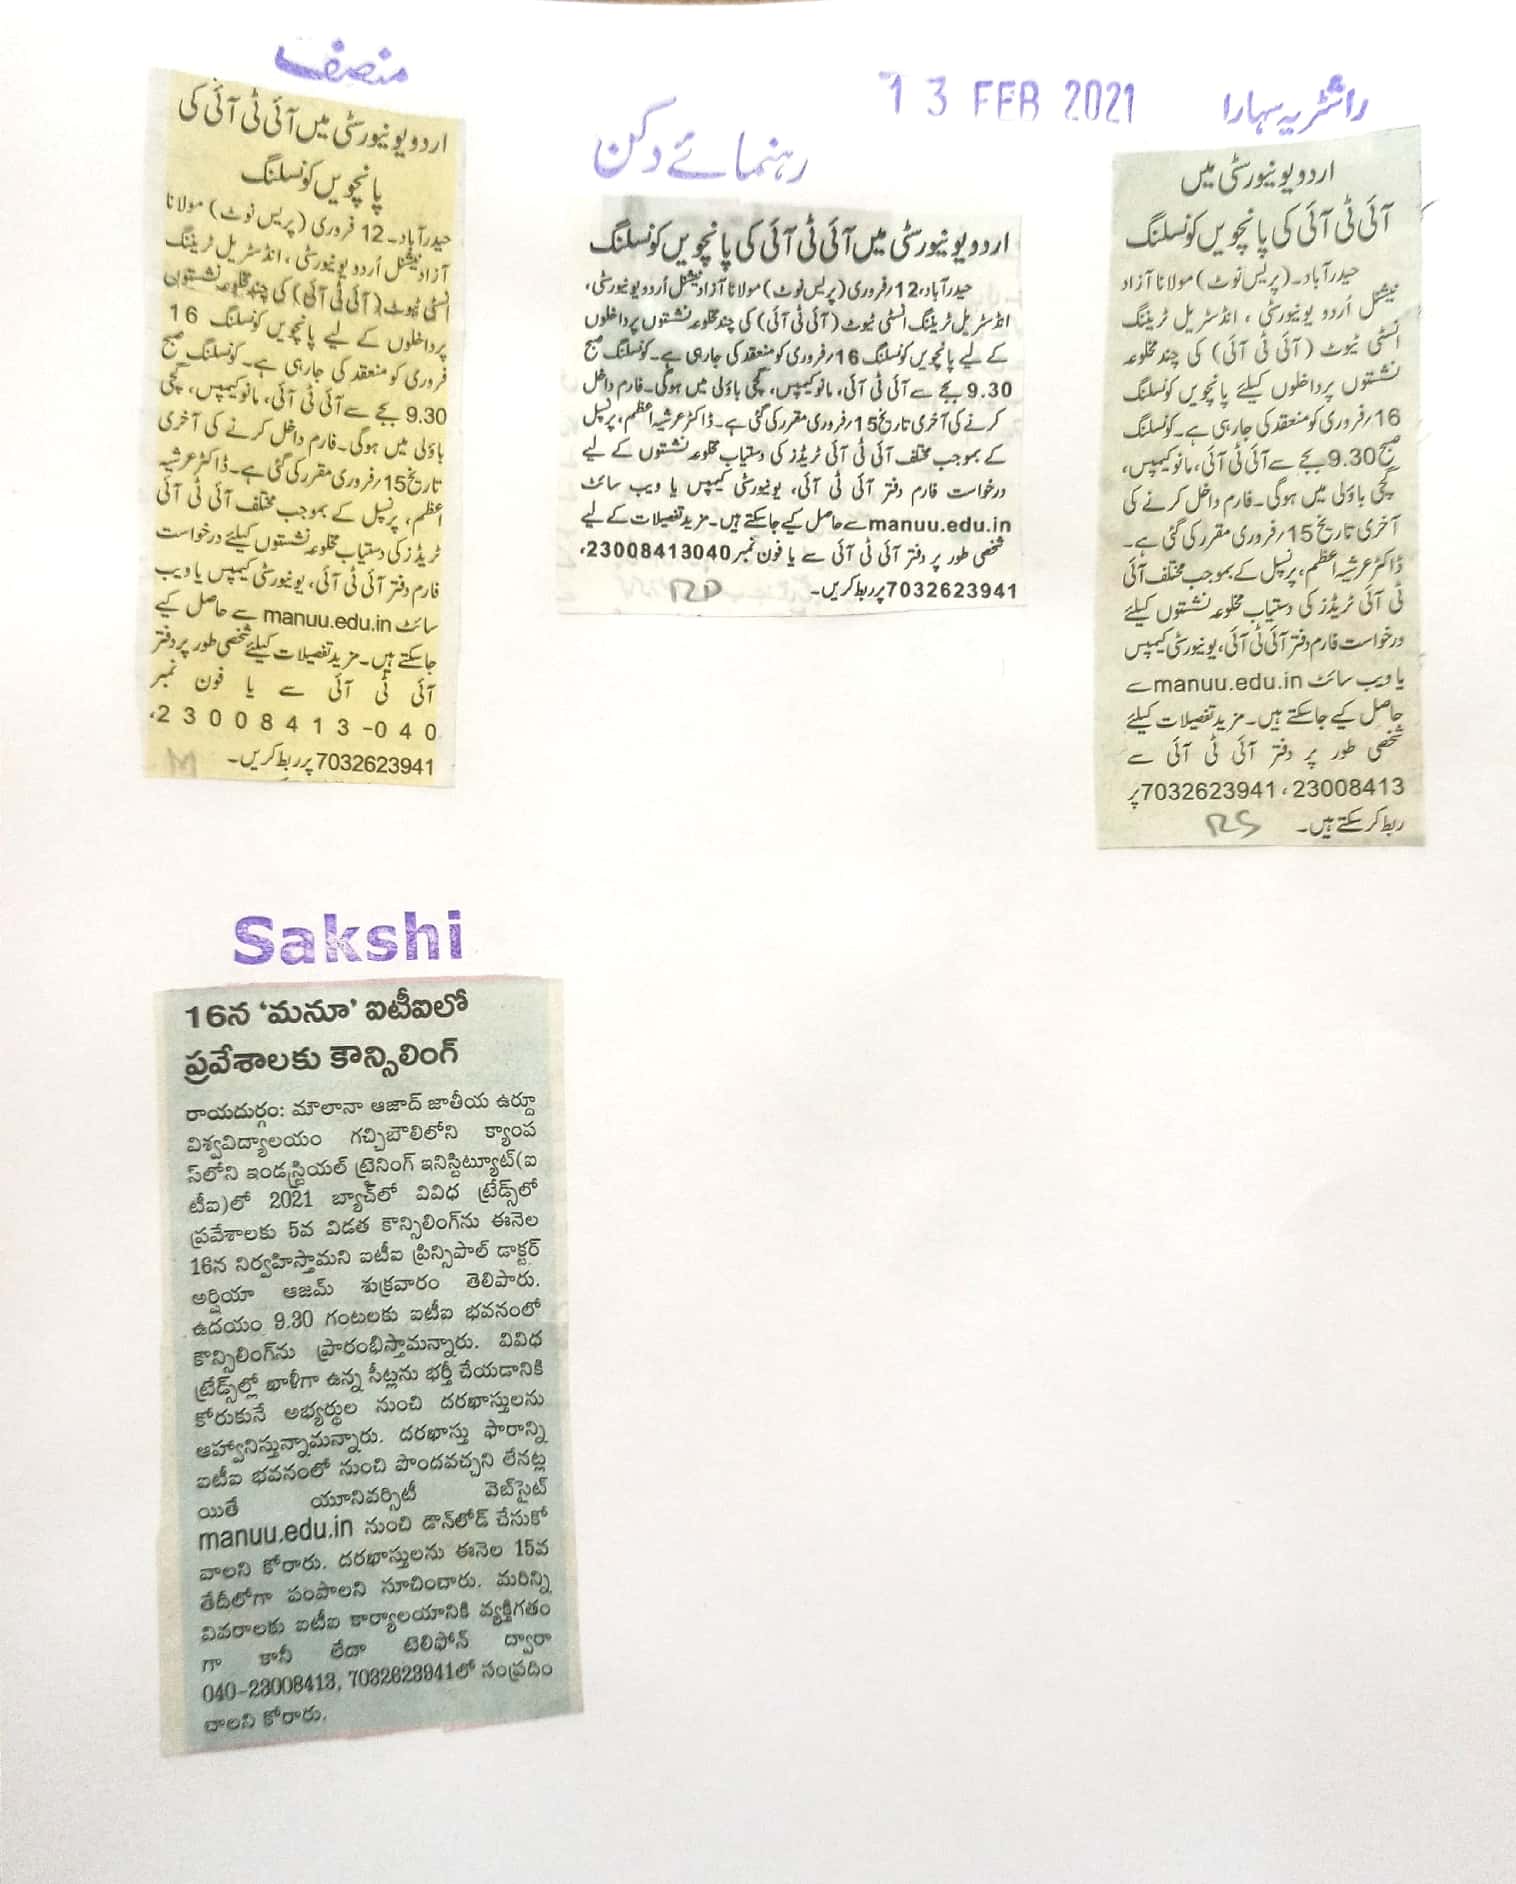 منصف
اردو یونیورسٹی میں آئی ٹی آئی کی
پانچویں کونسلنگ
حیدرآباد۔ 12 فروری (پریس نوٹ) مولانا
آزاد نیشنل اُردو یونیورسٹی، انڈسٹریل ٹریننگ
انسٹی ٹیوٹ (آئی ٹی آئی) کی چند مخلوعہ نشستوں
پر داخلوں کے لیے پانچویں کونسلنگ 16
فروری کو منعقد کی جارہی ہے۔ کونسلنگ صبح
9.30 بجے سے آئی ٹی آئی، مانو کیمپس، گچی
باؤلی میں ہوگی۔ فارم داخل کرنے کی آخری
تاریخ 15؍فروری مقرر کی گئی ہے۔ ڈاکٹر عرشیہ
اعظم، پرنسپل کے بموجب مختلف آئی ٹی آئی
ٹریڈز کی دستیاب مخلوعہ نشستوں کیلئے درخواست
فارم دفتر آئی ٹی آئی، یونیورسٹی کیمپس یا ویب
سائٹ manuu.edu.in سے حاصل کیے
جاسکتے ہیں۔ مزید تفصیلات کیلئے شخصی طور پر دفتر
آئی ٹی آئی سے یا فون نمبر
040-23008413،
7032623941 پر ربط کریں۔
M
رہنمائے دکن
اردو یونیورسٹی میں آئی ٹی آئی کی پانچویں کونسلنگ
حیدرآباد، 12؍فروری (پریس نوٹ) مولانا آزاد نیشنل اُردو یونیورسٹی،
انڈسٹریل ٹریننگ انسٹی ٹیوٹ (آئی ٹی آئی) کی چند مخلوعہ نشستوں پر داخلوں
کے لیے پانچویں کونسلنگ 16؍فروری کو منعقد کی جارہی ہے۔ کونسلنگ صبح
9.30 بجے سے آئی ٹی آئی، مانو کیمپس، گچی باؤلی میں ہوگی۔ فارم داخل
کرنے کی آخری تاریخ 15؍فروری مقرر کی گئی ہے۔ ڈاکٹر عرشیہ اعظم، پرنسپل
کے بموجب مختلف آئی ٹی آئی ٹریڈز کی دستیاب مخلوعہ نشستوں کے لیے
درخواست فارم دفتر آئی ٹی آئی، یونیورسٹی کیمپس یا ویب سائٹ
manuu.edu.in سے حاصل کیے جاسکتے ہیں۔ مزید تفصیلات کے لیے
شخصی طور پر دفتر آئی ٹی آئی سے یا فون نمبر 23008413040،
7032623941 پر ربط کریں۔
RD
13 FEB 2021
راشٹریہ سہارا
اردو یونیورسٹی میں
آئی ٹی آئی کی پانچویں کونسلنگ
حیدرآباد۔ (پریس نوٹ) مولانا آزاد
نیشنل اُردو یونیورسٹی، انڈسٹریل ٹریننگ
انسٹی ٹیوٹ (آئی ٹی آئی) کی چند مخلوعہ
نشستوں پر داخلوں کیلئے پانچویں کونسلنگ
16؍فروری کو منعقد کی جارہی ہے۔ کونسلنگ
صبح 9.30 بجے سے آئی ٹی آئی، مانو کیمپس،
گچی باؤلی میں ہوگی۔ فارم داخل کرنے کی
آخری تاریخ 15؍فروری مقرر کی گئی ہے۔
ڈاکٹر عرشیہ اعظم، پرنسپل کے بموجب مختلف آئی
ٹی آئی ٹریڈز کی دستیاب مخلوعہ نشستوں کیلئے
درخواست فارم دفتر آئی ٹی آئی، یونیورسٹی کیمپس
یا ویب سائٹ manuu.edu.in سے
حاصل کیے جاسکتے ہیں۔ مزید تفصیلات کیلئے
شخصی طور پر دفتر آئی ٹی آئی سے
23008413، 7032623941 پر
ربط کرسکتے ہیں۔
RS
Sakshi
16న ‘మనూ’ ఐటీఐలో
ప్రవేశాలకు కౌన్సిలింగ్
రాయదుర్గం: మౌలానా ఆజాద్ జాతీయ ఉర్దూ
విశ్వవిద్యాలయం గచ్చిబౌలిలోని క్యాంప
స్‌లోని ఇండస్ట్రియల్ ట్రైనింగ్ ఇనిస్టిట్యూట్(ఐ
టీఐ)లో 2021 బ్యాచ్‌లో వివిధ ట్రేడ్స్‌లో
ప్రవేశాలకు 5వ విడత కౌన్సిలింగ్‌ను ఈనెల
16న నిర్వహిస్తామని ఐటీఐ ప్రిన్సిపాల్ డాక్టర్
అర్షియా ఆజమ్ శుక్రవారం తెలిపారు.
ఉదయం 9.30 గంటలకు ఐటీఐ భవనంలో
కౌన్సిలింగ్‌ను ప్రారంభిస్తామన్నారు. వివిధ
ట్రేడ్స్‌ల్లో ఖాళీగా ఉన్న సీట్లను భర్తీ చేయడానికి
కోరుకునే అభ్యర్థుల నుంచి దరఖాస్తులను
ఆహ్వానిస్తున్నామన్నారు. దరఖాస్తు ఫారాన్ని
ఐటీఐ భవనంలో నుంచి పొందవచ్చని లేనట్ల
యితే యూనివర్సిటీ వెబ్‌సైట్
manuu.edu.in నుంచి డౌన్‌లోడ్ చేసుకో
వాలని కోరారు. దరఖాస్తులను ఈనెల 15వ
తేదీలోగా పంపాలని సూచించారు. మరిన్ని
వివరాలకు ఐటీఐ కార్యాలయానికి వ్యక్తిగతం
గా కానీ లేదా టెలిఫోన్ ద్వారా
040-23008413, 7032623941లో సంప్రదిం
చాలని కోరారు.